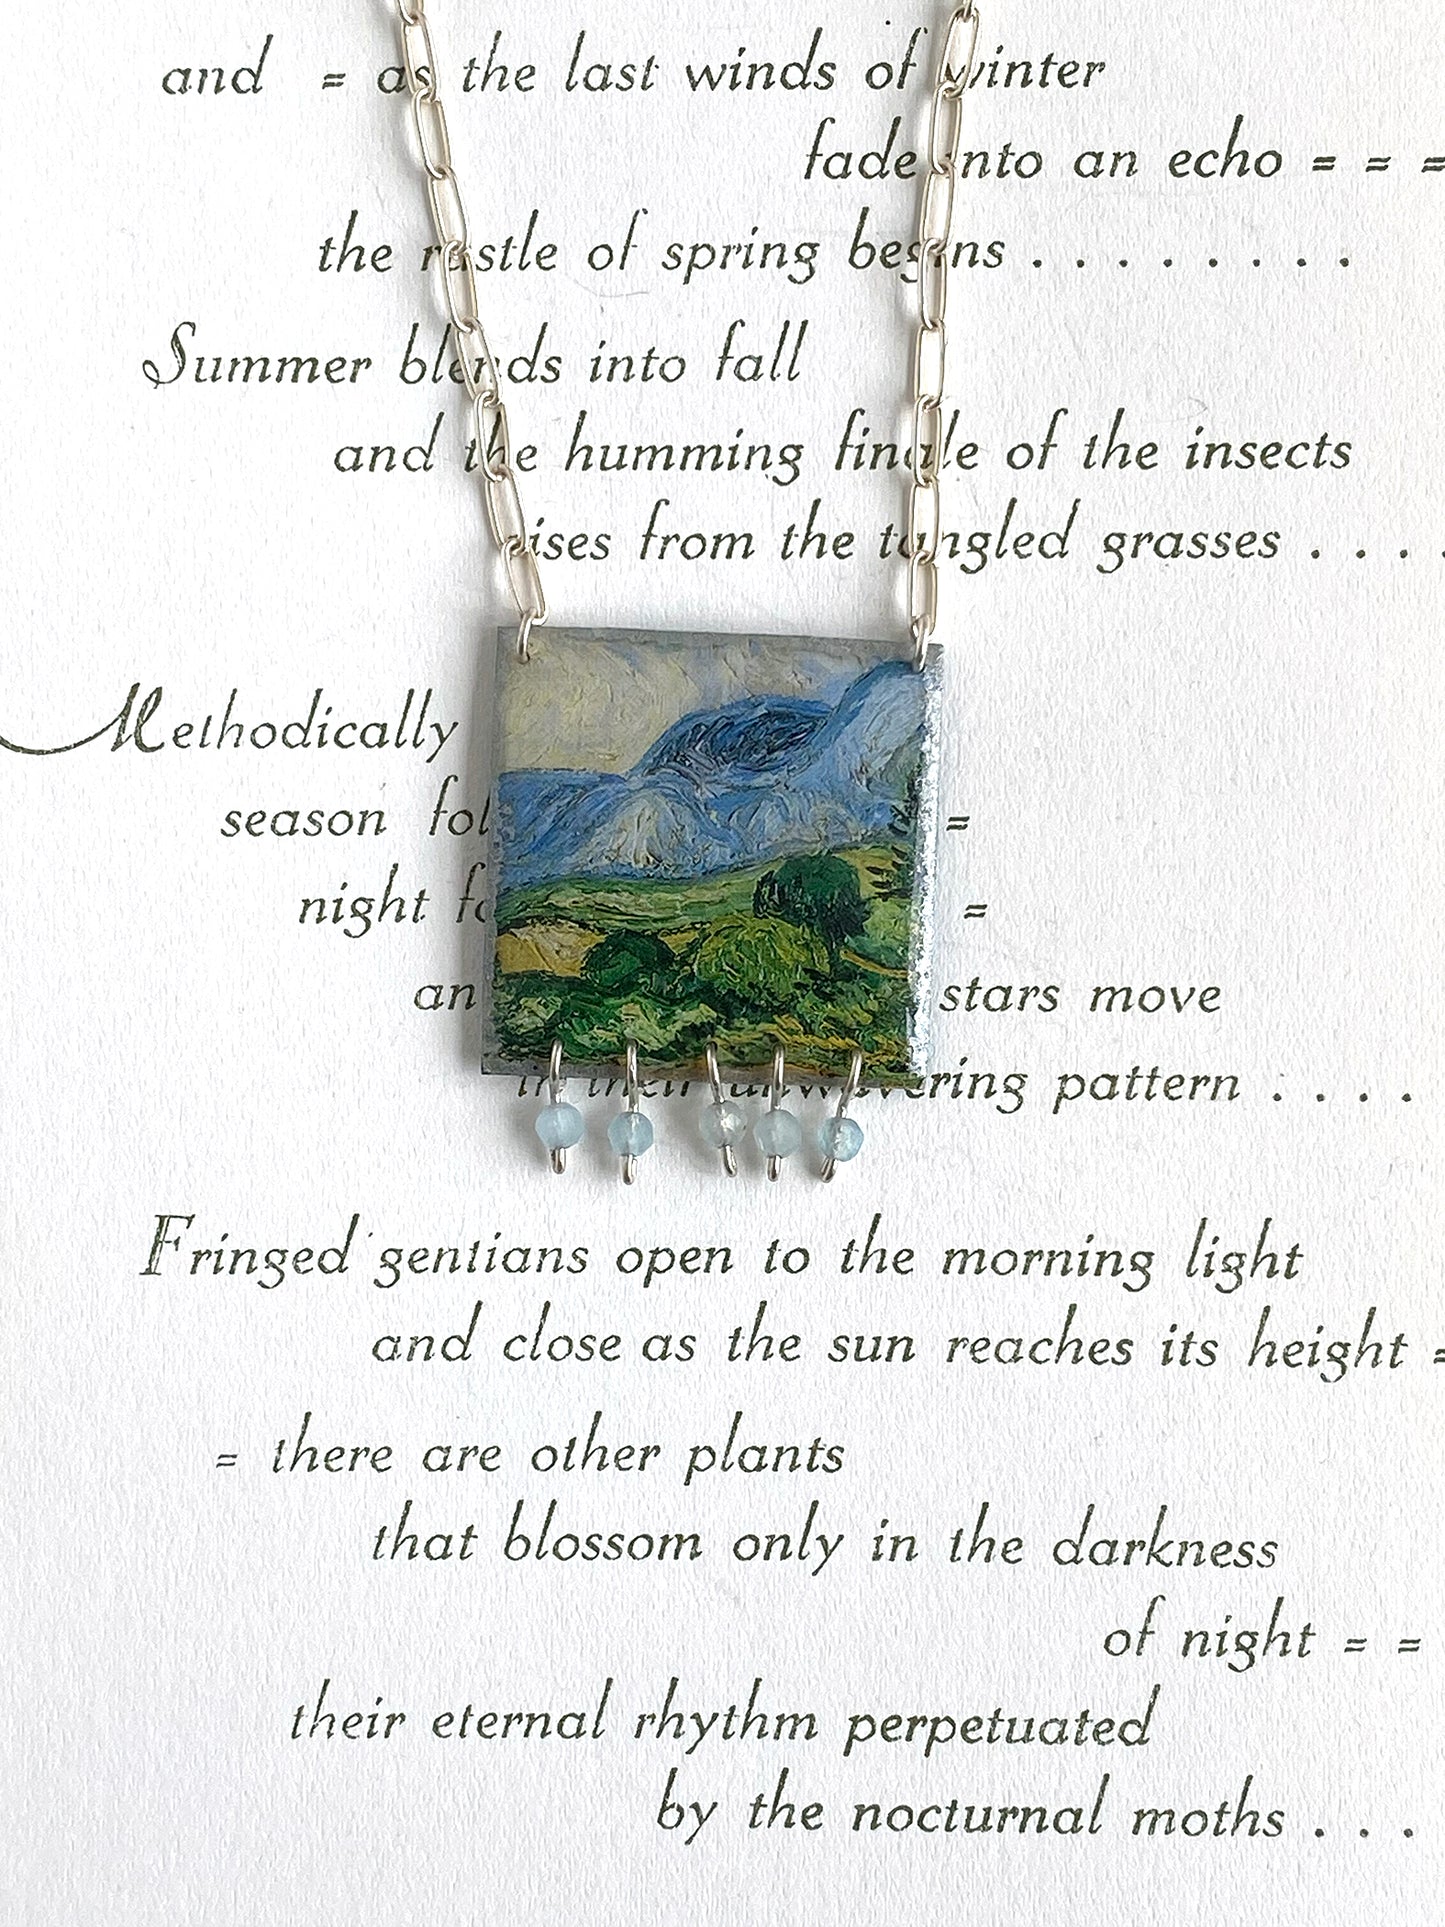 and = as the last winds of winter
fade into an echo = = =
the rustle of spring begins . . . . . . . .
Summer blends into fall
and the humming finale of the insects
rises from the tangled grasses . . . .
Methodically
season =
night =
stars move
in their unwavering pattern . . . .
Fringed gentians open to the morning light
and close as the sun reaches its height =
= there are other plants
that blossom only in the darkness
of night = =
their eternal rhythm perpetuated
by the nocturnal moths . . .